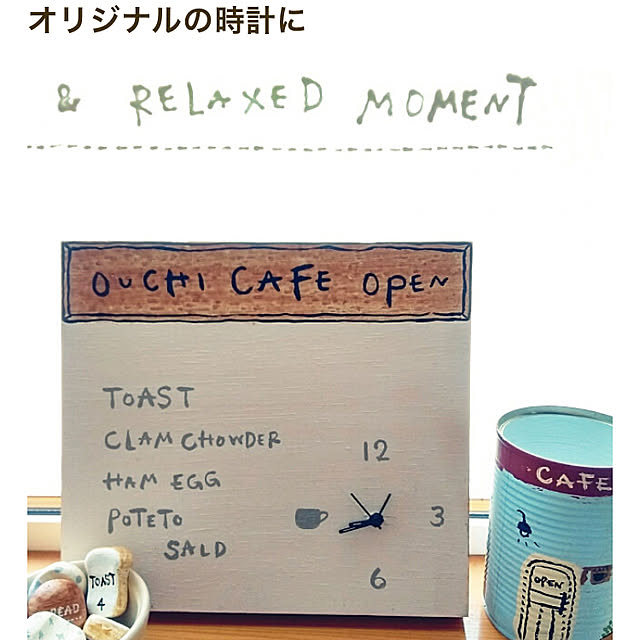 オリジナルの時計に
& RELAXED MOMENT
OUCHI CAFE OPEN
TOAST
CLAM CHOWDER
HAM EGG
POTETO
SALD
12
3
6
CAFE
OPEN
TOAST
4
BREAD